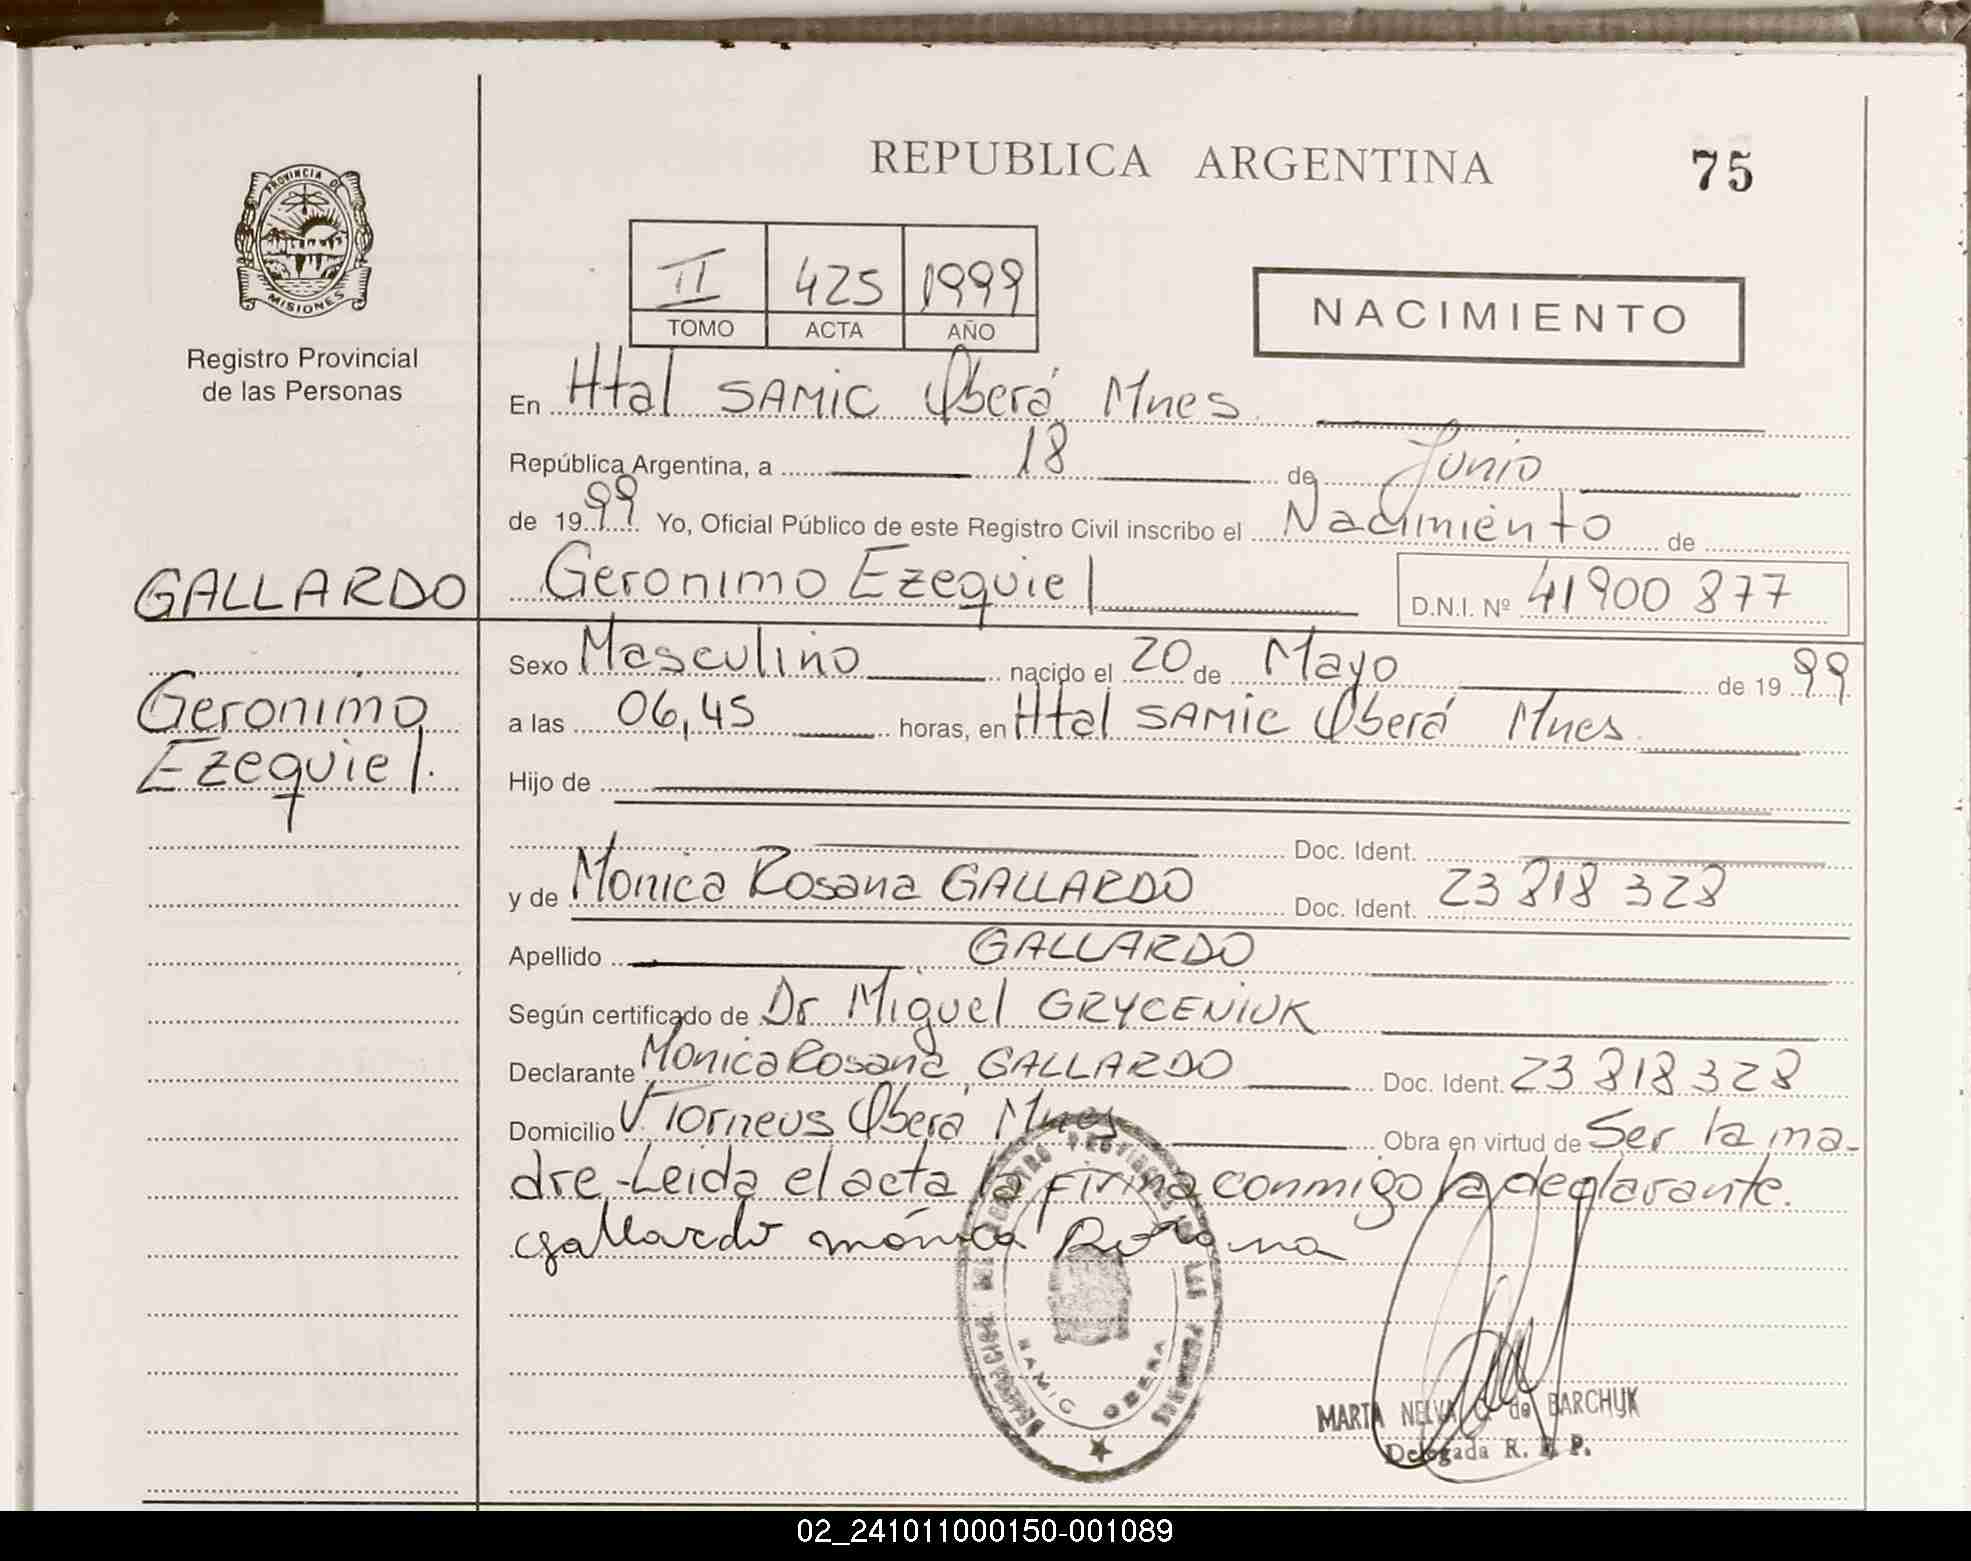 REPUBLICA ARGENTINA
75
PROVINCIA DE
MISIONES
Registro Provincial
de las Personas
II 425 1999
TOMO ACTA AÑO
NACIMIENTO
En Htal SAMIC Oberá Mnes.
República Argentina, a 18 de Junio
de 1999 Yo, Oficial Público de este Registro Civil inscribo el Nacimiento de
GALLARDO Geronimo Ezequiel D.N.I. Nº 41900 877
Sexo Masculino nacido el 20 de Mayo de 1999
Geronimo
Ezequiel.
a las 06,45 horas, en Htal SAMIC Oberá Mnes.
Hijo de
Doc. Ident.
y de Monica Rosana GALLARDO Doc. Ident. 23 818 328
Apellido GALLARDO
Según certificado de Dr Miguel GRYCENIUK
Declarante Monica Rosana GALLARDO Doc. Ident. 23 818 328
Domicilio V. Torneus Oberá Mnes Obra en virtud de Ser la ma-
dre.-Leida el acta la firma conmigo la declarante.
Gallardo mónica Rosana
DEL REGISTRO PROVINCIAL DE LAS PERSONAS
SAMIC OBERA
MARTA NELVA C. de BARCHUK
Delegada R. P. P.
02_241011000150-001089